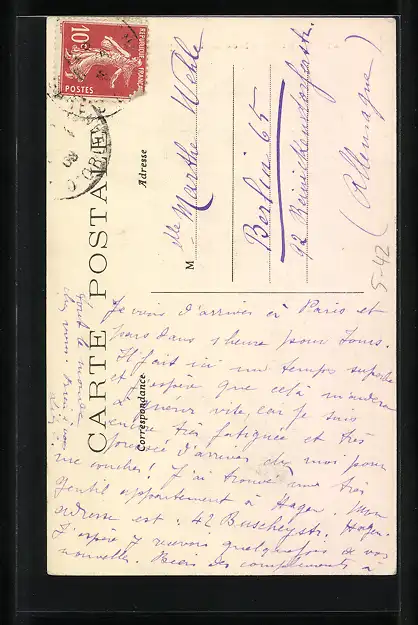 CARTE POSTALE
Correspondance
Adresse
RÉPUBLIQUE FRANÇAISE
10c
POSTES
M lle Marthe Wehle
Berlin 65
92 Reinickendorferstr.
(Allemagne)
5-42
Je viens d'arriver à Paris et
pars dans 1 heure pour Tours.
Il fait ici un temps superbe
et j'espère que celà m'aidera
à vite, car je suis
encore très fatiguée et très
d'arriver chez moi pour
me coucher! J'ai trouvé une très
gentil appartement à Hagen. Mon
adresse est: 42 Buscheystr. Hagen.
J'espère y recevoir quelquefois de vos
nouvelles. Bien des compliments à
tout le monde
chez vous